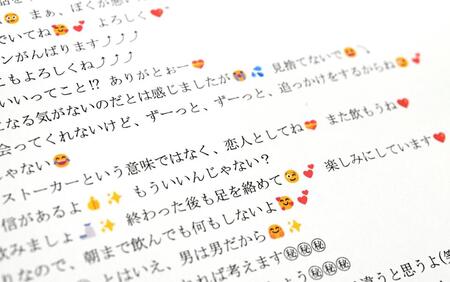 😊 まぁ、ぼくが悪
でいてね🥰💕 よろしく❤
ンがんばります⤴⤴⤴
こもよろしくね⤴⤴⤴
いいってこと⁉ ありがとぉー💝
になる気がないのだとは感じましたが😭💦 見捨てないで😳
会ってくれないけど、ずーっと、ずーっと、追っかけをするからね💕
じゃない😂
ストーカーという意味ではなく、恋人としてね💝 また飲もうね❤
信があるよ👍✨ もういいんじゃない?
飲みましょ✨ 終わった後も足を絡めて🥰💕 楽しみにしています❤
れなので、朝まで飲んでも何もしないよ🥰💕
とはいえ、男は男だから🤗✨
れば考えます㊙㊙㊙
よう㊙㊙㊙
違うと思うよ(笑